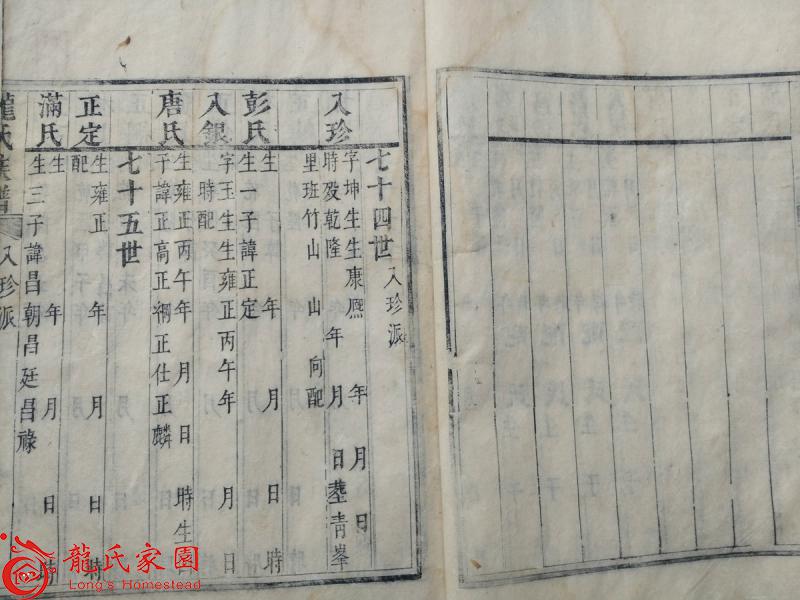 七十四世 入珍派
入珍 字坤生生康熈 年 月 日
時殁乾隆 年 月 日塟青峯
里班竹山 山 向配
彭氏 生 年 月 日 時
生一子諱正定
入銀 字玉生生雍正丙午年 月 日
時配
唐氏 生雍正丙午年 月 日 時生四
子諱正高正綱正仕正麟
七十五世
正定 生雍正 年 月 日 時
配
滿氏 生 年 月 日 時
生三子諱昌朝昌廷昌祿
龍氏族譜 入珍派
龍氏家園
Long's Homestead